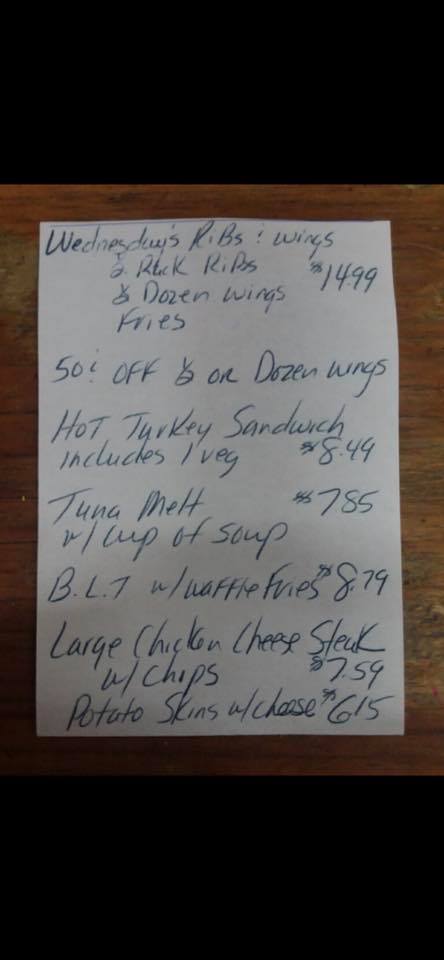 Wednesday's RiBs & wings
½ Rack RiBs $14.99
½ Dozen wings
Fries
50¢ OFF ½ or Dozen wings
HoT Turkey Sandwich
includes 1 veg $8.49
Tuna Melt $7.85
w/ cup of soup
B.L.T w/ waffle Fries $8.79
Large Chicken Cheese Steak
w/ Chips $7.59
Potato Skins w/cheese $6.15